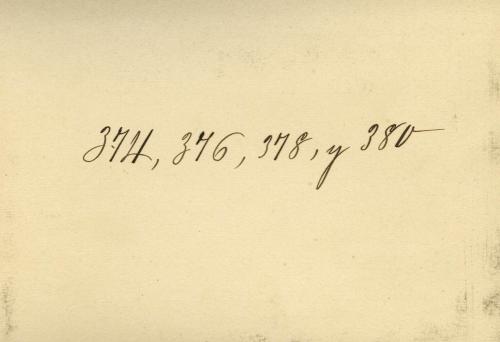 374, 376, 378, y 380